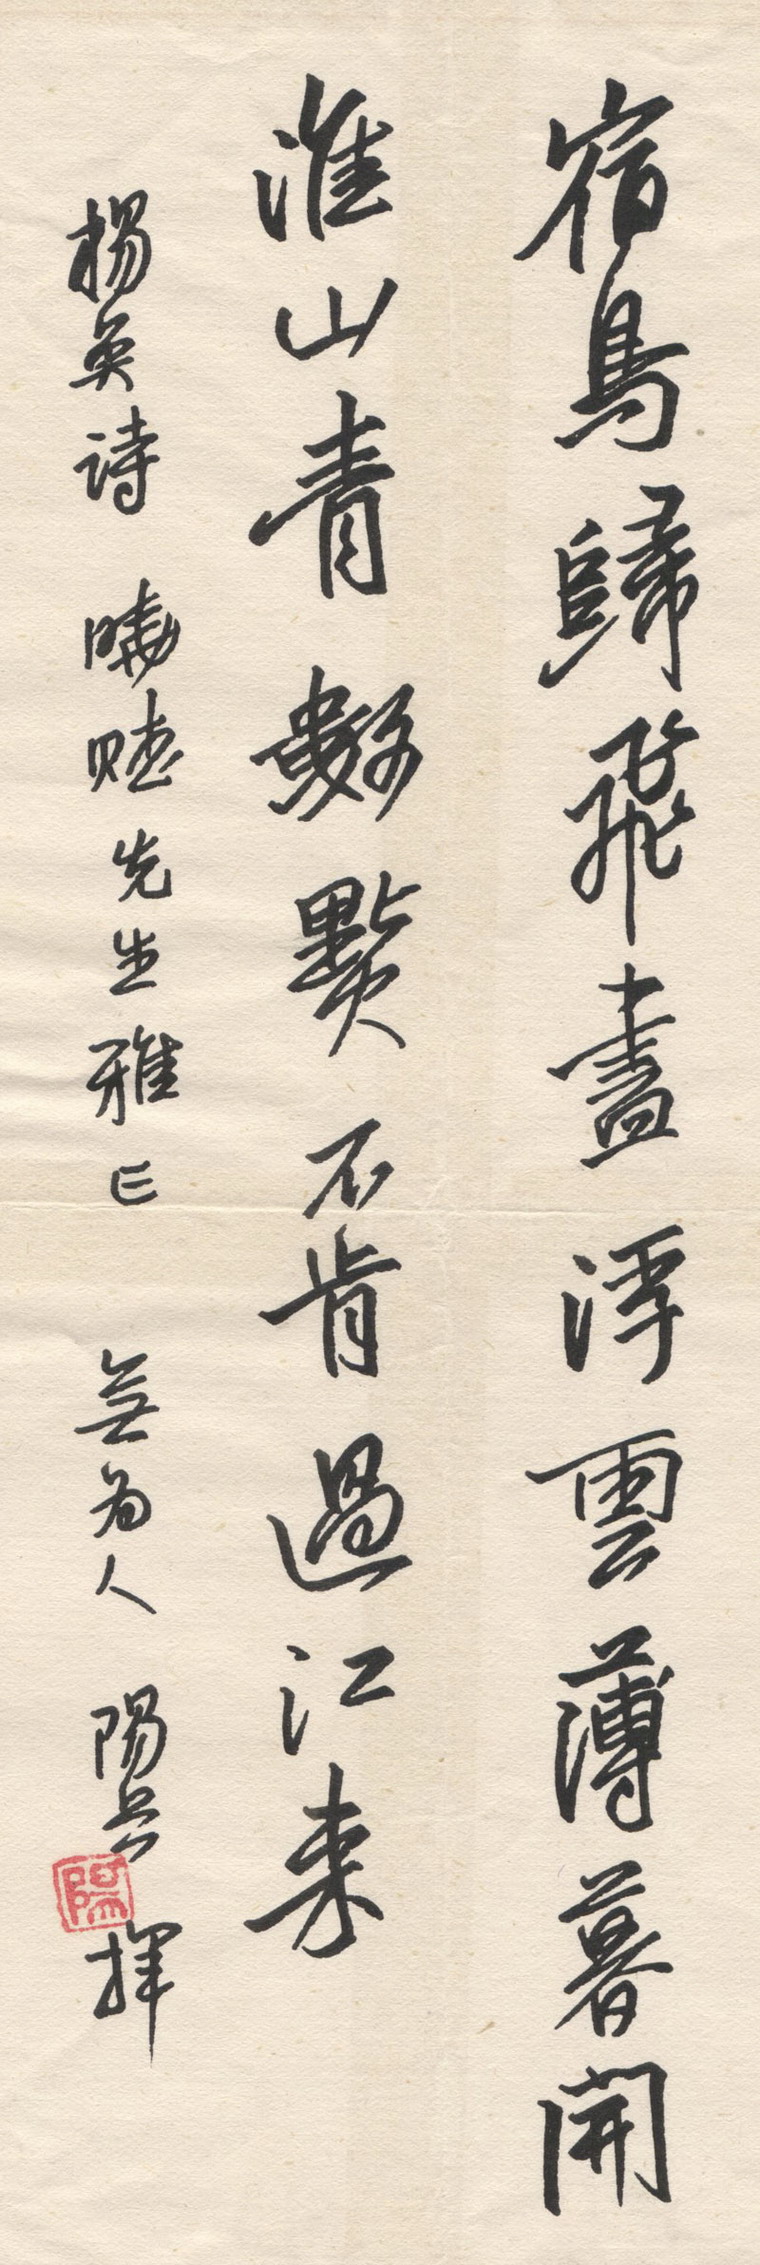 宿鳥歸飛盡浮雲薄暮開
淮山青數點不肯過江来
楊奐诗 曉陆先生雅正 無为人 陽兵 揮
陽